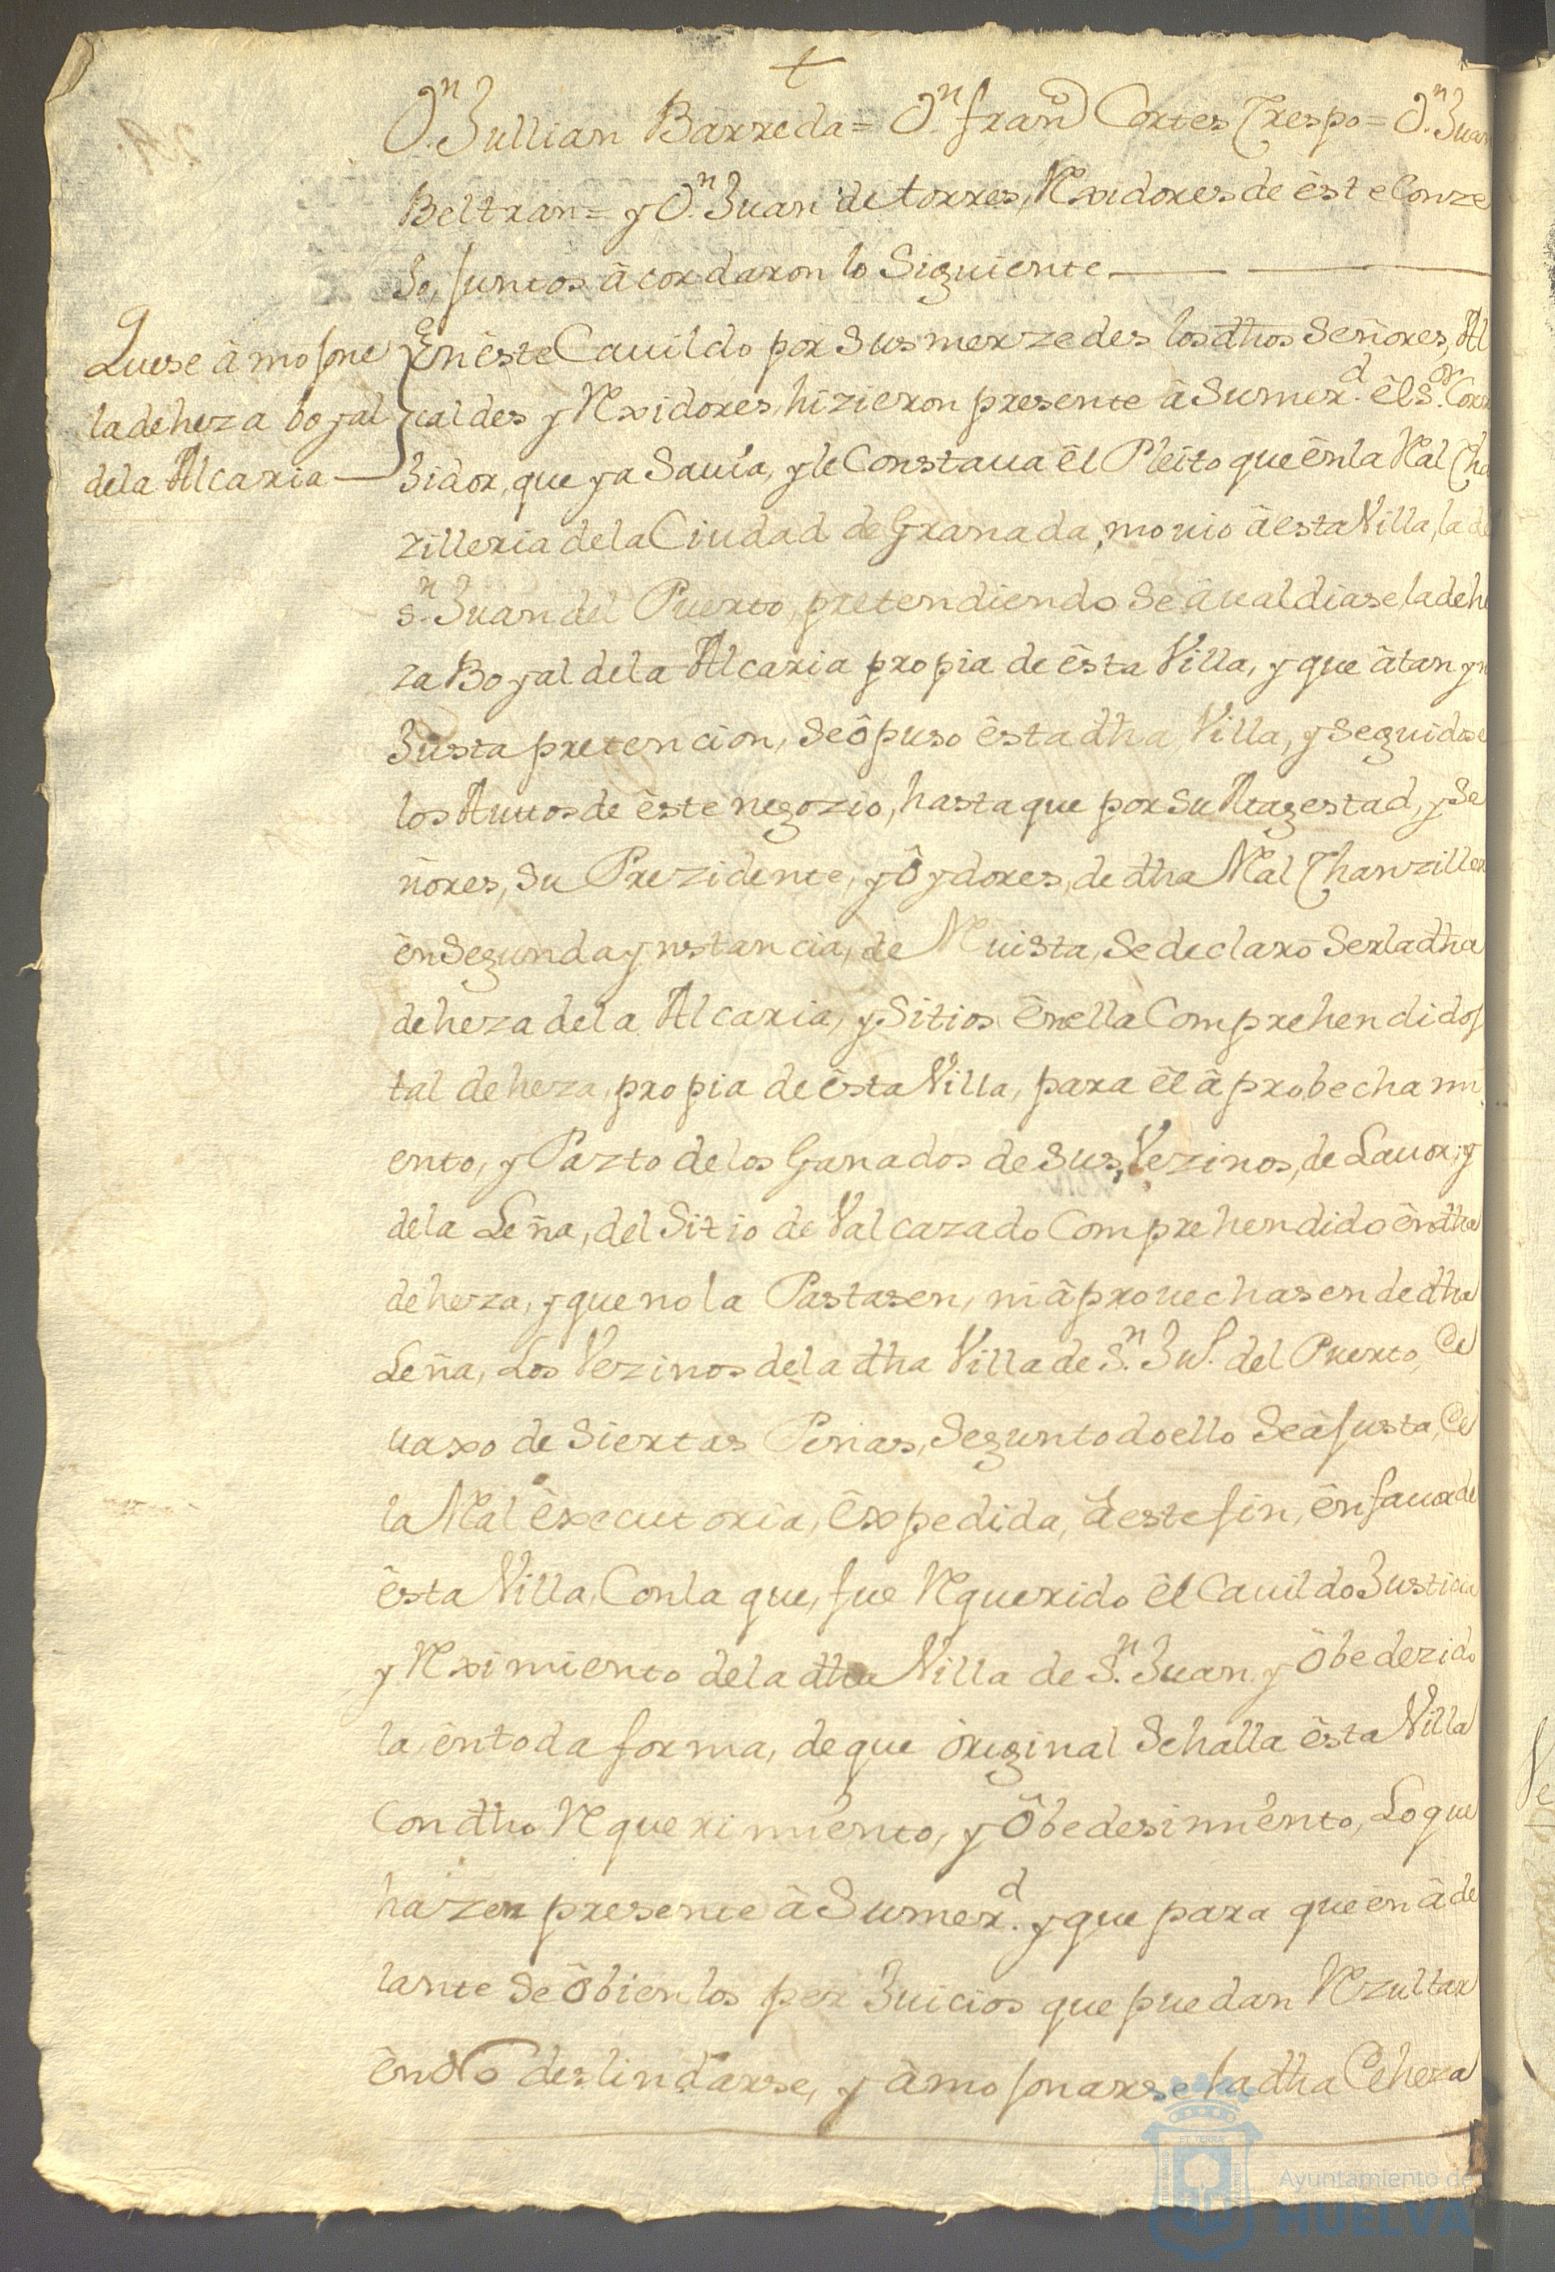 †
Dn. Jullian Barreda = Dn. franco Cortes Crespo = Dn. Juan
Beltran = y Dn. Juan de torres, Rexidores de este Conze
Jo, Juntos âcordaron lo Siguiente
Que se âmojone
la deheza boyal
de la Alcaria
En êste Cauildo por Sus merzedes los dhos Señores, Al
caldes y Rexidores, hizieron presente â Su merd. êl Sor. Corre
Jidor, que ya Sauia, y le Constaua êl Pleito que ên la Ral Cha
zilleria de la Ciudad de Granada, mouio â esta Villa, la de
Sn. Juan del Puerto, pretendiendo Se âualdiase, la dehe
za Boyal de la Alcaria propia de êsta Villa, y que â tan yn
Justa pretencion, Se ôpuso êsta dha Villa, y Seguidose
los Auttos de êste negozio, hasta que por Su Magestad, y Se
ñores, Su Prezidente, y Ôydores, de dha Ral Chanzilleri
ên Segunda ynstancia, de Reuista, Se declarô Ser la dha
deheza de la Alcaria, y Sitios ên ella Comprehendidos
tal deheza, propia de êsta Villa, para êl âprobechami
ento, y Pazto de los Ganados de Sus Vezinos, de Lauor, y
de la Leña, del Sitio de Valcazado Comprehendido ên dha
deheza, y que no la Pastasen, ni âprouechasen de dha
Leña, Los Vezinos de la dha Villa de Sn. Jun. del Puerto, De
uaxo de Siertas Penas, Segun todo ello Se âJusta, De
la Ral êxecutoria, êxpedida, â este fin, ên fauor de
êsta Villa, Con la que, fue Requerido êl Cauildo Justicia
y Reximiento de la dha Villa de Sn. Juan y Ôbedezido
la, ên toda forma, de que ôriginal Se halla êsta Villa
Con dho Requerimiento, y Ôbedesimiento, Lo que
hazen presente â Su merd. y que para que ên âde
lante Se ôbien los perJuicios que puedan Rezultar
ên No deslindarse, y âmojonarse la dha Deheza
Ayuntamiento de
HUELVA